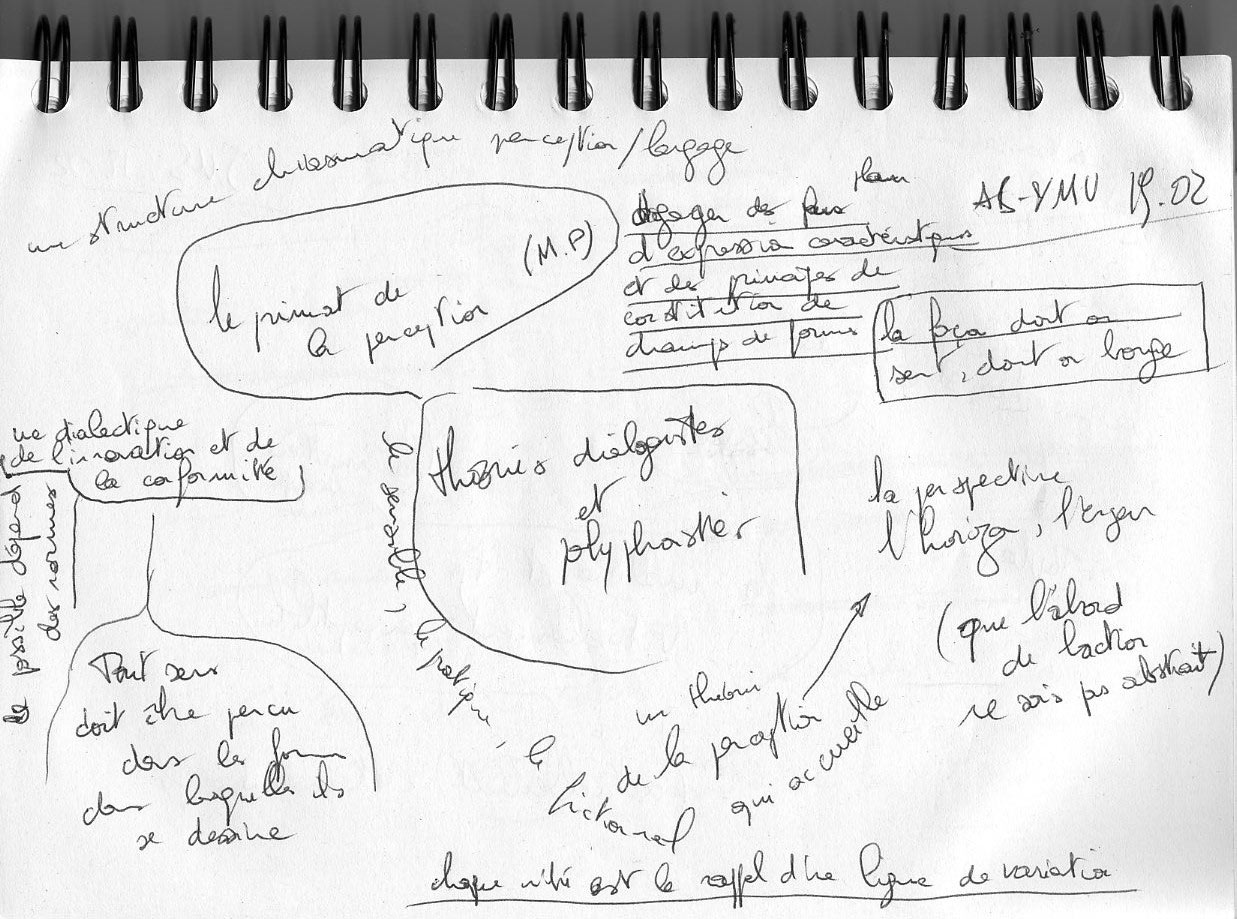 une structure chiasmatique perception/langage
AB-YMV 19.02
(M.P)
le primat de
la perception
plans
dégager des
d'expression caractéristiques
et des principes de
constitution de
champs de formes
la façon dont on
sent, dont on bouge
une dialectique
de l'innovation et de
la conformité
le possible dépend
des normes
théories dialogistes
et
polyphonistes
la perspective
l'horizon, l'enjeu
(que l'abord
de l'action
ne sois pas abstrait)
Tout sens
doit être perçu
dans la forme
dans laquelle il
se dessine
le sensible, le pratique, le
fictionnel
une théorie
de la perception
qui accueille
chaque unité est le rappel d'une ligne de variation